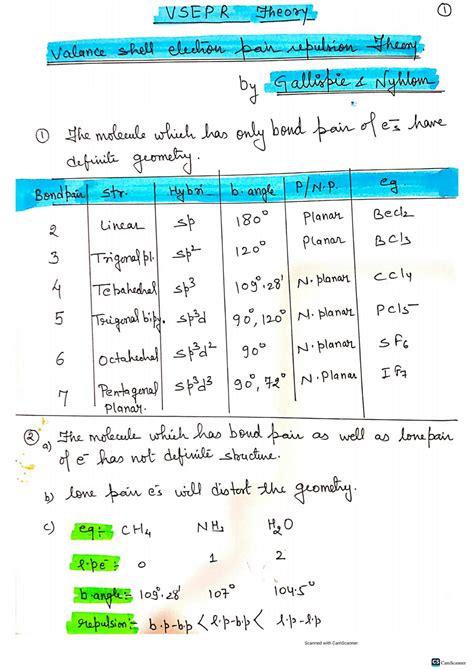 VSEPR Theory
①
Valance shell electron pair repulsion Theory
by Gallispie & Nyhlom
① The molecule which has only bond pair of e⁻s have
definite geometry.
Bondpair Str. Hybri b.angle P/N.P. eg
2 Linear sp 180° Planar BeCl2
3 Trigonal pl. sp² 120° Planar BCl3
4 Tetrahedral sp³ 109°.28' N.planar CCl4
5 Trigonal bipy. sp³d 90°,120° N.planar PCl5
6 Octahedral sp³d² 90° N.planar SF6
7 Pentagonal sp³d³ 90°,72° N.Planar IF7
planar.
② a) The molecule which has bond pair as well as lone pair
of e⁻ has not definite structure.
b) lone pair e⁻s will distort the geometry.
c) eg:- CH4 NH3 H2O
l.pe⁻:- 0 1 2
b.angle:- 109°.28' 107° 104.5°
repulsion:- b.p-bp < l.p-bp < l.p-l.p
Scanned with CamScanner
CS CamScanner